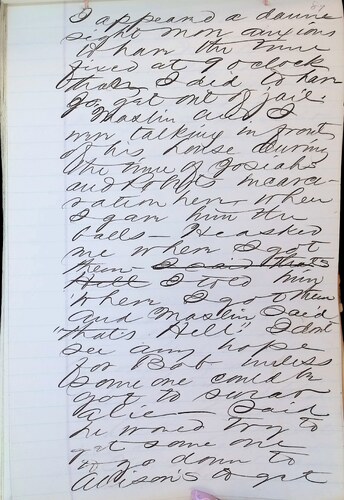 I appeared a damn
sight more anxious
to have the time
fixed at 9 o'clock
than I did to have
Jo get out of jail.
Maslin and I
were talking in front
of his house during
the time of Josiah's
and Bob's incarce-
ration here when
I gave him the
balls - He asked
me when I got
them I said that's
Hell I told him
where I got them
and Maslin said
"that's Hell" I don't
see any hope
for Bob unless
some one could be
got to swear
a lie - Said
he would try to
get some one
to go down to
Allison's to get